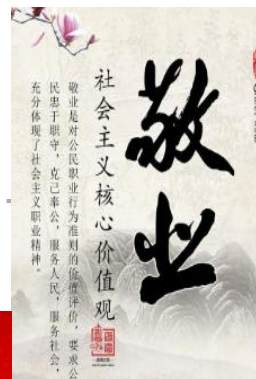 敬业
社会主义核心价值观
敬业是对公民职业行为准则的价值评价，要求公
民忠于职守，克己奉公，服务人民，服务社会，
充分体现了社会主义职业精神。